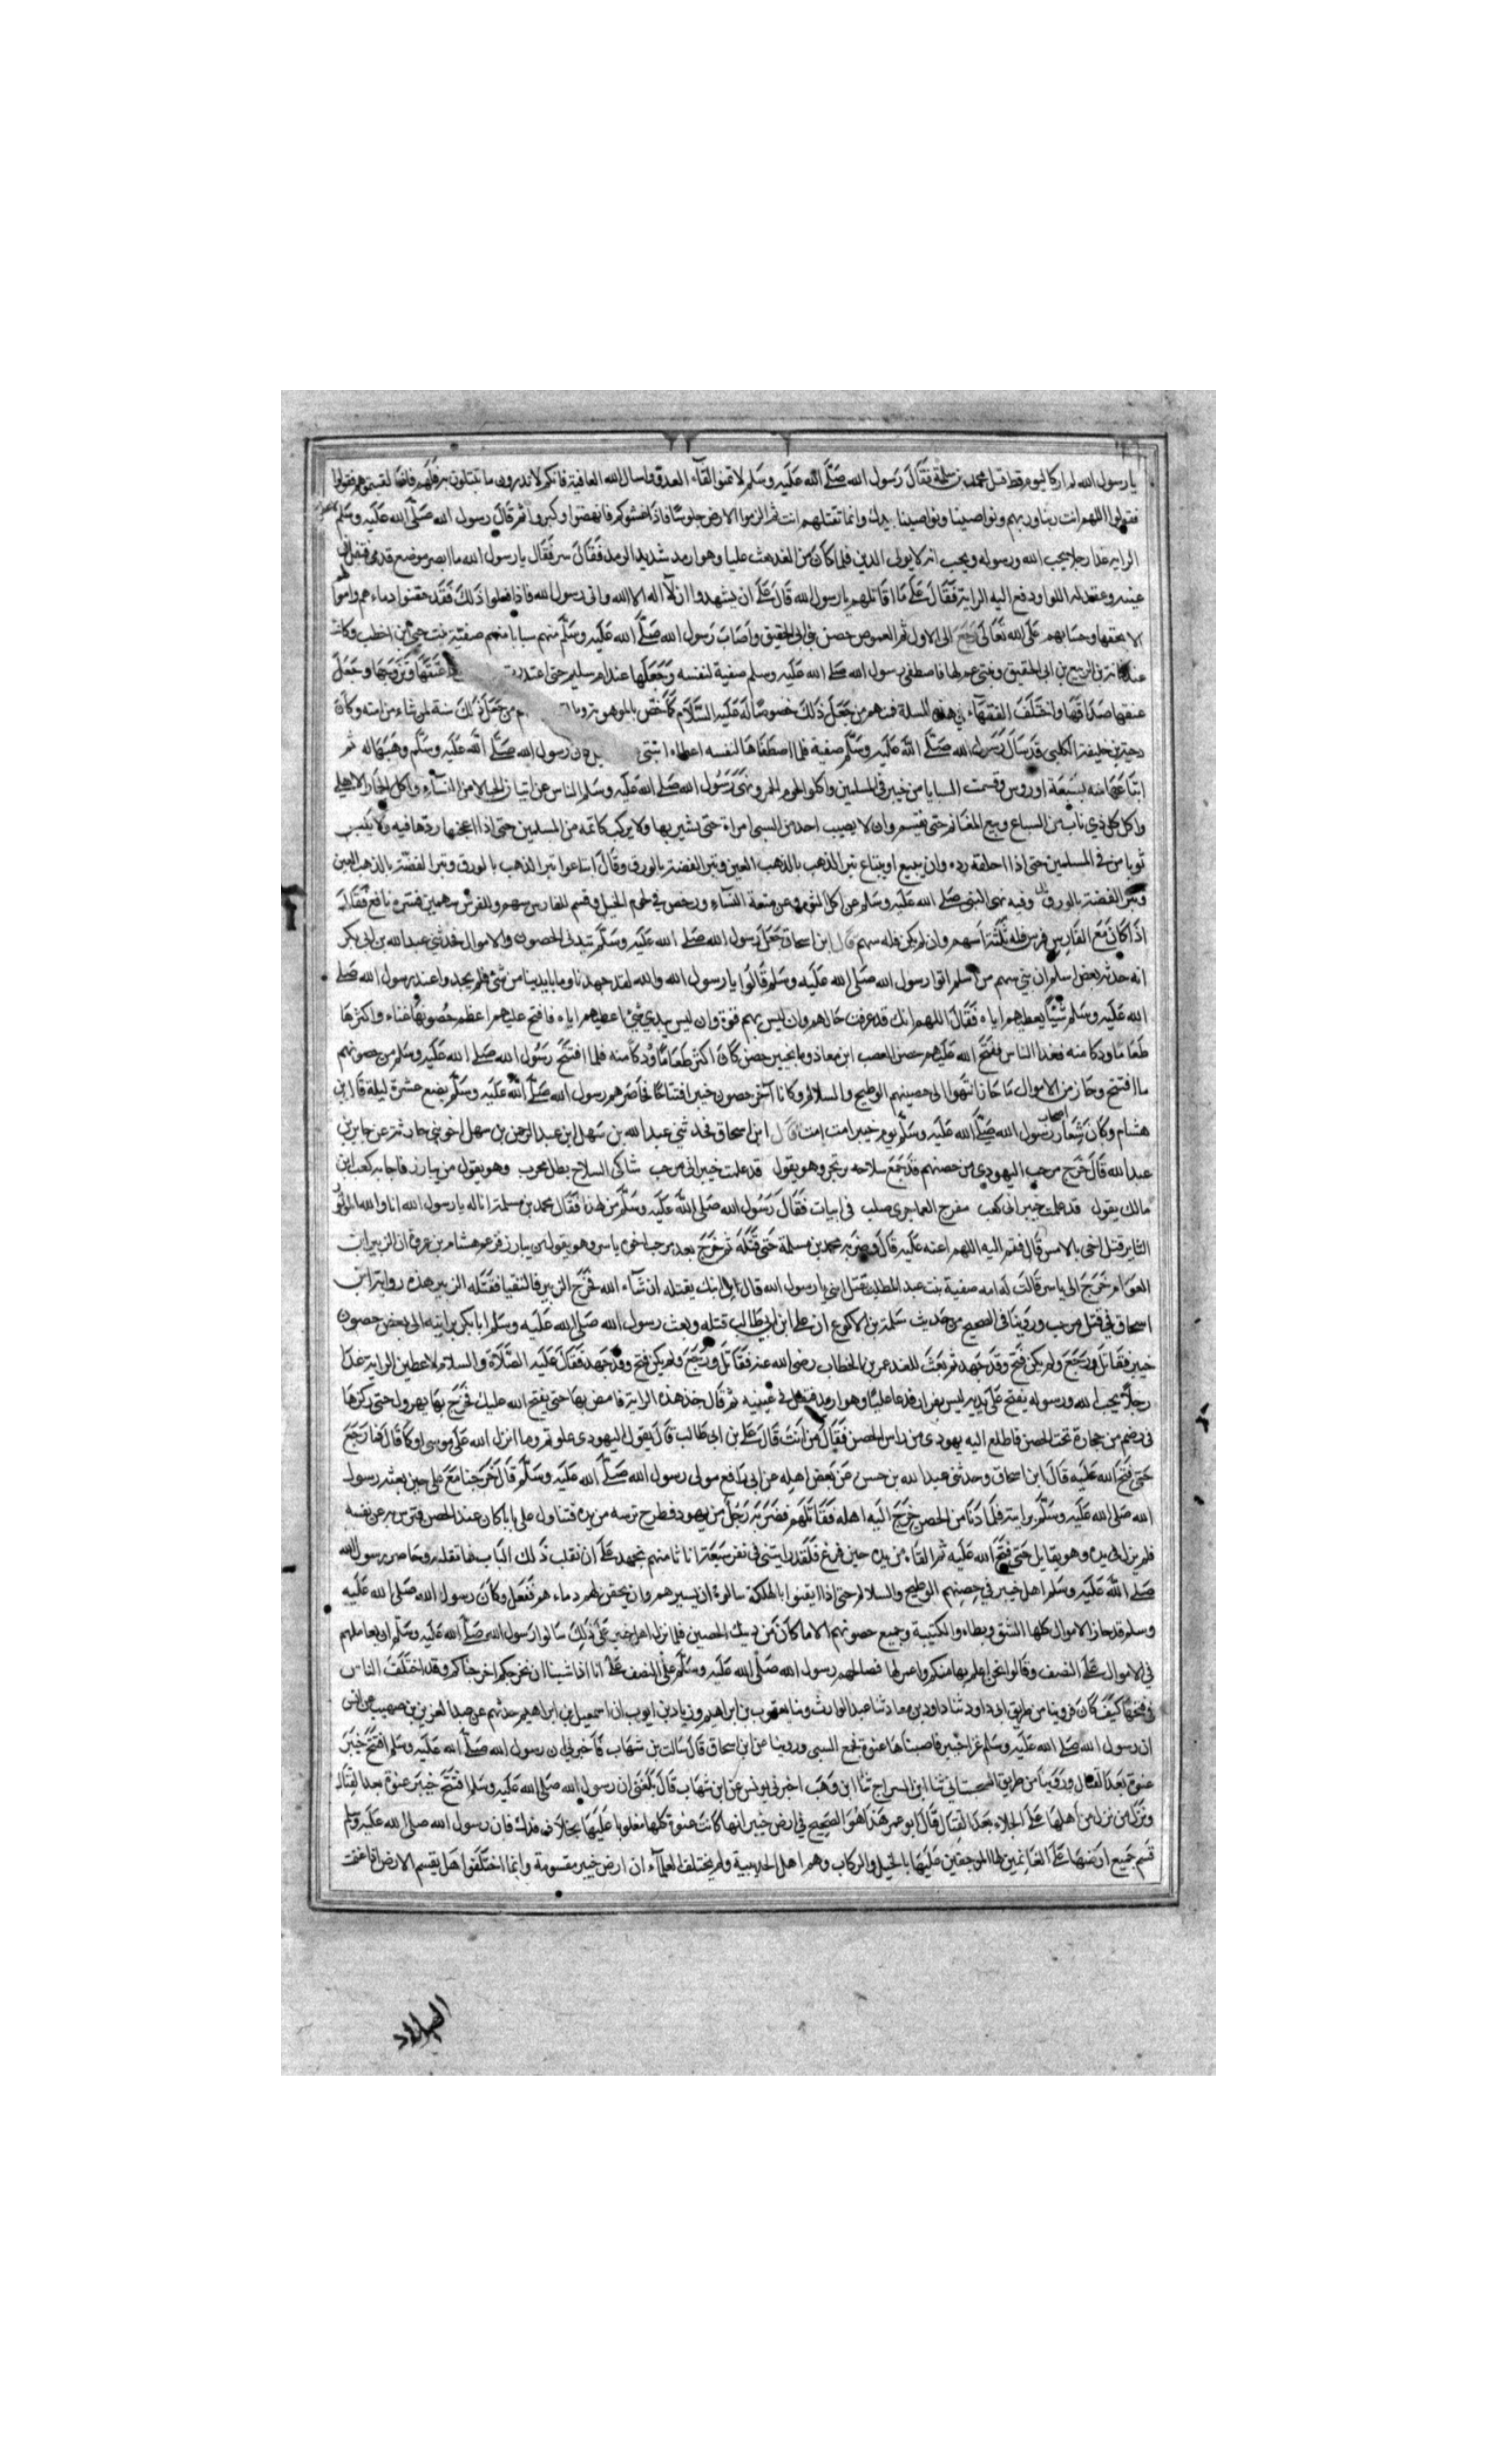 يا رسول الله لم ار كاليوم قط قتل محمد بن مسلمة فقال رسول الله صلى الله عليه وسلم لا تمنوا لقاء العدو واسال الله العافية فانكم لا تدرون ما تبتلون به منهم فاذا لقيتموهم فقولوا
فقولوا اللهم انت ربنا وربهم ونواصينا ونواصيهم بيدك وانما تقتلهم انت ثم الزموا الارض جلوسا فاذا غشوكم فانهضوا وكبروا ثم قال رسول الله صلى الله عليه وسلم
الراية غدا رجلا يحب الله ورسوله ويحب انه لا يولى الدبر فلما كان من الغد بعث عليا وهو ارمد شديد الرمد فقال سر فقال يا رسول الله ما ابصر موضع قدمى فتفل فى
عينيه وعقد له اللوا ودفع اليه الراية فقال على ما اقاتلهم يا رسول الله قال على ان يشهدوا ان لا اله الا الله وانى رسول الله فاذا فعلوا ذلك فقد حقنوا دماءهم واموا
الا بحقها وحسابهم على الله تعالى رجع الى الاول ثم القموص حصن بنى ابى الحقيق واصاب رسول الله صلى الله عليه وسلم منهم سبايا منهم صفية بنت حيى بن اخطب وكانت
عند كنانة بن الربيع بن ابى الحقيق وبنتى عم لها فاصطفى رسول الله صلى الله عليه وسلم صفية لنفسه وجعلها عند ام سليم حتى اعتدت اعتقها وتزوجها وجعل
عتقها صداقها واختلف الفقهاء فى هذه المسلة فمنهم من جعل ذلك خصوصا له عليه السلام كما خص بالموهوبة من جعل ذلك سنة لمن شاء من امته وكان
دحية بن خليفة الكلبى قد سال رسول الله صلى الله عليه وسلم صفية فلما اصطفاها لنفسه اعطاه ابنتى ان رسول الله صلى الله عليه وسلم وهبها له ثم
ابتاعها منه بسبعة اروس وقسمت السبايا من خيبر فى المسلمين واكلوا لحوم الحمر ونهى رسول الله صلى الله عليه وسلم الناس عن اتيان الحبالا من النساء واكل الحمار الاهلى
واكل كل ذي ناب من السباع وبيع المغانم حتى تقسم وان لا يصيب احد من السبى امراة حتى يستبرئها ولا يركب دابة من المسلمين حتى اذا اعجفها ردها فيه ولا يلبس
ثوبا من فى المسلمين حتى اذا اخلقه رده وان يبيع او يبتاع تبر الذهب بالذهب العين وتبر الفضة بالورق وقال ابتاعوا تبر الذهب بالورق وتبر الفضة بالذهب العين
وتبر الفضة بالورق وفيه نهى النبى صلى الله عليه وسلم عن اكل الثوم وعن متعة النساء ورخص فى لحوم الخيل وقسم للفارس سهم وللفرس سهمين فسره نافع فقال
اذا كان مع الفارس فرس فله ثلثة اسهم وان لم يكن فله سهم قال ابن اسحاق جعل رسول الله صلى الله عليه وسلم يتدنى الحصون والاموال فحدثنى عبد الله بن ابى بكر
انه حدثه بعض اسلم ان بنى سهم من اسلم اتوا رسول الله صلى الله عليه وسلم قالوا يا رسول الله والله لقد جهدنا وما بايدينا من شئ فلم يجدوا عند رسول الله صلى
الله عليه وسلم شيئا يعطيهم اياه فقال اللهم انك قد عرفت حالهم وان ليس بهم قوة وان ليس بيدي شئ اعطيهم اياه فافتح عليهم اعظم حصونها غناء واكثرها
طعاما وودكا منه فغدا الناس ففتح الله عليهم حصن الصعب ابن معاذ وما بخيبر حصن كان اكثر طعاما وودكا منه فلما افتتح رسول الله صلى الله عليه وسلم من حصونهم
ما افتتح وحاز من الاموال ما حاز انتهوا الى حصنيهم الوطيح والسلالم وكانا آخر حصون خيبر افتتاحا فحاصرهم رسول الله صلى الله عليه وسلم بضع عشرة ليلة قال ابن
هشام وكان شعار اصحاب رسول الله صلى الله عليه وسلم يوم خيبر امت امت قال ابن اسحاق فحدثنى عبد الله بن سهل ابن عبد الرحمن بن سهل اخو بنى حارثة عن جابر بن
عبد الله قال خرج مرحب اليهودى من حصنهم قد جمع سلاحه يرتجز وهو يقول قد علمت خيبر انى مرحب شاكى السلاح بطل مجرب وهو يقول من يبارز فاجابه كعب ابن
مالك يقول قد علمت خيبر انى كعب مفرج الغما جرى صلب فى ابيات فقال رسول الله صلى الله عليه وسلم من لهذا فقال محمد بن مسلمة انا له يا رسول الله انا والله الموتور
الثاير قتل اخى بالامس قال فقم اليه اللهم اعنه عليه قال وضربه محمد بن مسلمة حتى قتله ثم خرج بعد مرحب اخوه ياسر وهو يقول من يبارز فزعم هشام بن عروة ان الزبير ابن
العوام خرج الى ياسر قالت له امه صفية بنت عبد المطلب يقتل ابنى يا رسول الله قال بل ابنك يقتله ان شاء الله فخرج الزبير فالتقيا فقتله الزبير هذه رواية ابن
اسحاق فى قتل مرحب وروينا فى الصحيح من حديث سلمة بن الاكوع ان على ابن ابى طالب قتله وبعث رسول الله صلى الله عليه وسلم ابا بكر برايته الى بعض حصون
خيبر فقاتل ورجع ولم يكن فتح وقد جهد ثم بعث للغد عمر بن الخطاب رضى الله عنه فقاتل ورجع ولم يكن فتح وقد جهد فقال عليه الصلاة والسلام لاعطين الراية غدا
رجلا يحب الله ورسوله يفتح على يديه ليس بفرار فدعا عليا وهو ارمد فتفل فى عينيه ثم قال خذ هذه الراية فامض بها حتى يفتح الله عليك فخرج بها يهرول حتى ركزها
فى رضم من حجارة تحت الحصن فاطلع اليه يهودى من راس الحصن فقال من انت قال على بن ابى طالب قال يقول اليهودى علوتم وما انزل الله على موسى او كما قال فما رجع
حتى فتح الله عليه قال ابن اسحاق وحدثنى عبد الله بن حسن عن بعض اهله عن ابى رافع مولى رسول الله صلى الله عليه وسلم قال خرجنا مع على حين بعثه رسول
الله صلى الله عليه وسلم برايته فلما دنا من الحصن خرج اليه اهله فقاتلهم فضربه رجل من يهود فطرح ترسه من يده فتناول على بابا كان عند الحصن فترس به عن نفسه
فلم يزل فى يده وهو يقاتل حتى فتح الله عليه ثم القاه من يده حين فرغ فلقد رايتنى فى نفر سبعة انا ثامنهم نجهد على ان نقلب ذلك الباب فما نقلبه وحاصر رسول الله
صلى الله عليه وسلم اهل خيبر فى حصنهم الوطيح والسلالم حتى اذا ايقنوا بالهلكة سالوه ان يسيرهم وان يحقن لهم دماءهم ففعل وكان رسول الله صلى الله عليه
وسلم قد حاز الاموال كلها الشق ونطاه والكتيبة وجميع حصونهم الا ما كان من ذينك الحصنين فلما نزل اهل خيبر على ذلك سالوا رسول الله صلى الله عليه وسلم ان يعاملهم
فى الاموال على النصف وقالوا نحن اعلم بها منكم واعمر لها فصالحهم رسول الله صلى الله عليه وسلم على النصف على انا اذا شينا ان نخرجكم اخرجناكم وقد اختلف الناس
فى فتحها كيف كان فروينا من طريق ابى داود ثنا داود بن معاذ ثنا عبد الوارث وثنا يعقوب بن ابراهيم وزياد بن ايوب ان اسمعيل بن ابراهيم حدثهم عن عبد العزيز بن صهيب عن انس
ان رسول الله صلى الله عليه وسلم غزا خيبر فاصبناها عنوة فجمع السبى وروينا عن ابن اسحاق قال سالت بن شهاب فاخبرنى ان رسول الله صلى الله عليه وسلم افتتح خيبر
عنوة بعد القتال وروينا من طريق السجستانى ثنا ابن السراج ثنا ابن وهب اخبرنى يونس عن ابن شهاب قال بلغنى ان رسول الله صلى الله عليه وسلم افتتح خيبر عنوة بعد القتال
ونزل من نزل من اهلها على الجلاء بعد القتال قال ابو عمر هذا هو الصحيح فى ارض خيبر انها كانت عنوة كلها مغلوبا عليها بخلاف فدك فان رسول الله صلى الله عليه وسلم
قسم جميع ارضها على الغانمين لها الموجفين عليها بالخيل والركاب وهم اهل الحديبية ولم يختلف العلماء ان ارض خيبر مقسومة وانما اختلفوا هل يقسم الارض اذا غنمت
البلاد